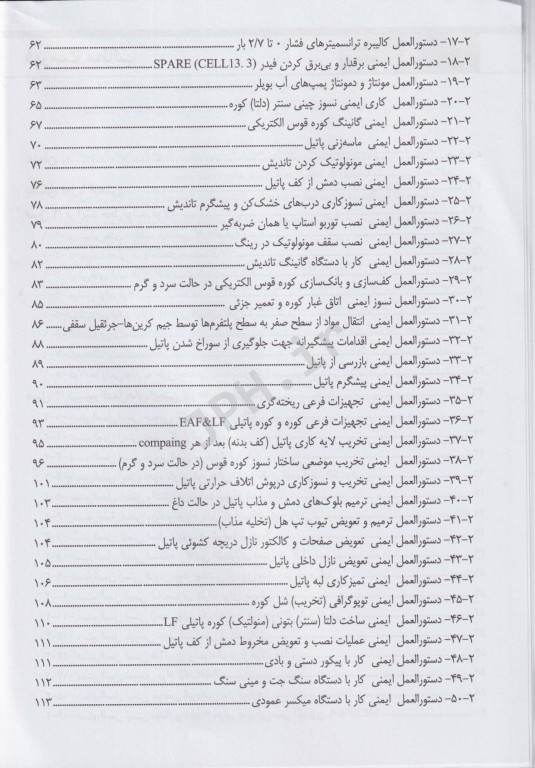 ۲-۱۷- دستورالعمل کالیبره ترانسمیترهای فشار ۰ تا ۲/۷ بار ..... ۶۲
۲-۱۸- دستورالعمل ایمنی برقدار و بی‌برق کردن فیدر SPARE (CELL13. 3) ..... ۶۲
۲-۱۹- دستورالعمل مونتاژ و دمونتاژ پمپ‌های آب بویلر ..... ۶۳
۲-۲۰- دستورالعمل کاری ایمنی نسوز چینی سنتر (دلتا) کوره ..... ۶۵
۲-۲۱- دستورالعمل ایمنی گانینگ کوره قوس الکتریکی ..... ۶۷
۲-۲۲- دستورالعمل ایمنی ماسه‌زنی پاتیل ..... ۷۰
۲-۲۳- دستورالعمل ایمنی مونولوتیک کردن تاندیش ..... ۷۲
۲-۲۴- دستورالعمل ایمنی نصب دمش از کف پاتیل ..... ۷۶
۲-۲۵- دستورالعمل ایمنی نسوزکاری درب‌های خشک‌کن و پیشگرم تاندیش ..... ۷۸
۲-۲۶- دستورالعمل ایمنی نصب توربو استاپ یا همان ضربه‌گیر ..... ۷۹
۲-۲۷- دستورالعمل ایمنی نصب سقف مونولوتیک در رینگ ..... ۸۰
۲-۲۸- دستورالعمل ایمنی کار با دستگاه گانینگ تاندیش ..... ۸۲
۲-۲۹- دستورالعمل کف‌سازی و بانک‌سازی کوره قوس الکتریکی در حالت سرد و گرم ..... ۸۳
۲-۳۰- دستورالعمل نسوز ایمنی اتاق غبار کوره و تعمیر جزئی ..... ۸۵
۲-۳۱- دستورالعمل ایمنی انتقال مواد از سطح صفر به سطح پلتفرم‌ها توسط جیم کرین‌ها-جرثقیل سقفی ..... ۸۶
۲-۳۲- دستورالعمل ایمنی اقدامات پیشگیرانه جهت جلوگیری از سوراخ شدن پاتیل ..... ۸۸
۲-۳۳- دستورالعمل ایمنی بازرسی از پاتیل ..... ۸۹
۲-۳۴- دستورالعمل ایمنی پیشگرم پاتیل ..... ۹۰
۲-۳۵- دستورالعمل ایمنی تجهیزات فرعی ریخته‌گری ..... ۹۱
۲-۳۶- دستورالعمل ایمنی تجهیزات فرعی کوره و کوره پاتیلی EAF&LF ..... ۹۳
۲-۳۷- دستورالعمل ایمنی تخریب لایه کاری پاتیل (کف بدنه) بعد از هر compaing ..... ۹۵
۲-۳۸- دستورالعمل ایمنی تخریب موضعی ساختار نسوز کوره قوس (در حالت سرد و گرم) ..... ۹۶
۲-۳۹- دستورالعمل ایمنی تخریب و نسوزکاری درپوش اتلاف حرارتی پاتیل ..... ۱۰۱
۲-۴۰- دستورالعمل ایمنی ترمیم بلوک‌های دمش و مذاب پاتیل در حالت داغ ..... ۱۰۳
۲-۴۱- دستورالعمل ترمیم و تعویض تیوب تپ هل (تخلیه مذاب) ..... ۱۰۴
۲-۴۲- دستورالعمل ایمنی تعویض صفحات و کالکتور نازل دریچه کشوئی پاتیل ..... ۱۰۴
۲-۴۳- دستورالعمل ایمنی تعویض نازل داخلی پاتیل ..... ۱۰۵
۲-۴۴- دستورالعمل ایمنی تمیزکاری لبه پاتیل ..... ۱۰۶
۲-۴۵- دستورالعمل ایمنی توپوگرافی (تخریب) شل کوره ..... ۱۰۸
۲-۴۶- دستورالعمل ایمنی ساخت دلتا (سنتر) بتونی (منولتیک) کوره پاتیلی LF ..... ۱۱۰
۲-۴۷- دستورالعمل ایمنی عملیات نصب و تعویض مخروط دمش از کف پاتیل ..... ۱۱۱
۲-۴۸- دستورالعمل ایمنی کار با پیکور دستی و بادی ..... ۱۱۱
۲-۴۹- دستورالعمل ایمنی کار با دستگاه سنگ جت و مینی سنگ ..... ۱۱۲
۲-۵۰- دستورالعمل ایمنی کار با دستگاه میکسر عمودی ..... ۱۱۳
JPH.ir